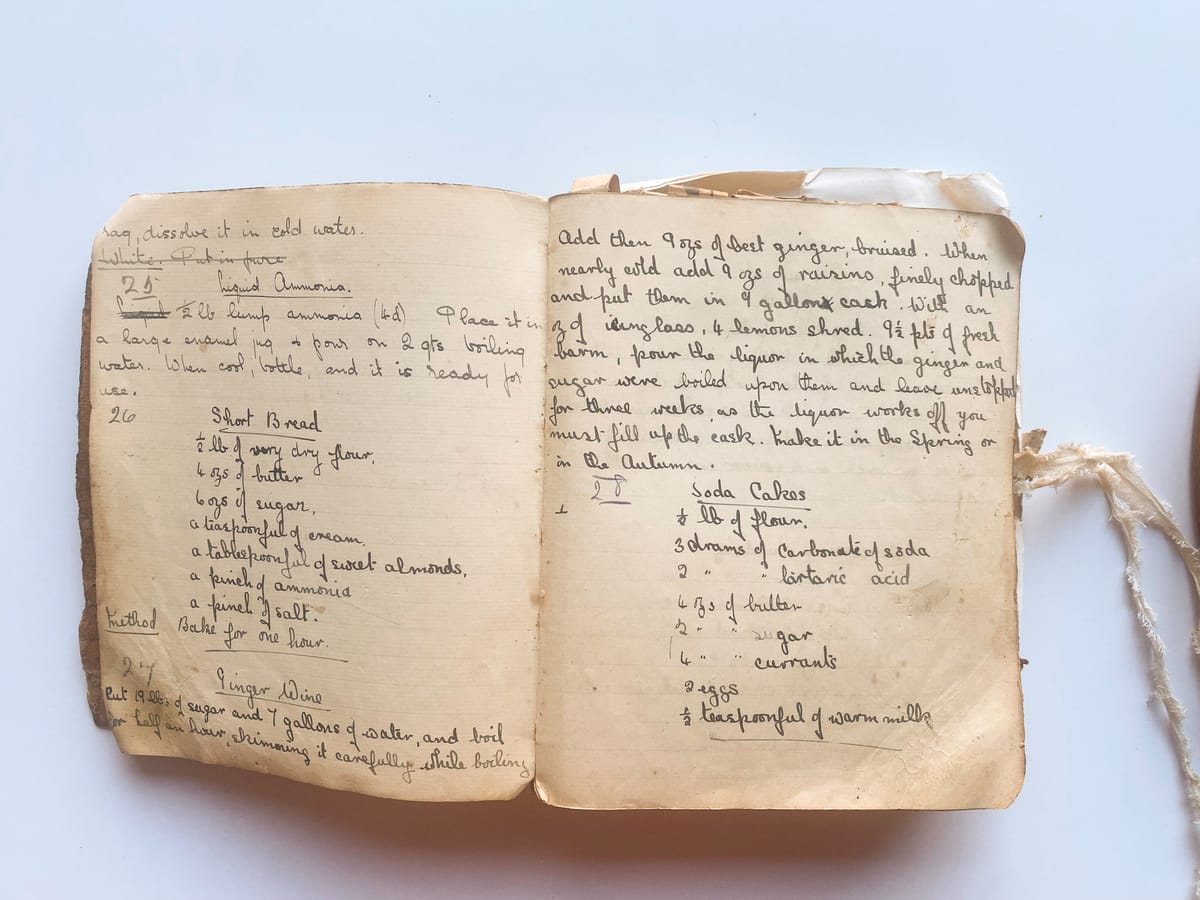 bag, dissolve it in cold water.
White. Put in pure
25 Liquid Ammonia.
Liquid ½ lb lump ammonia (4d) Place it in
a large enamel jug & pour on 2 qts boiling
water. When cool, bottle, and it is ready for
use.
26 Short Bread
½ lb of very dry flour,
4 ozs of butter
6 ozs of sugar,
a teaspoonful of cream,
a tablespoonful of sweet almonds,
a pinch of ammonia
a pinch of salt.
Method Bake for one hour.
27 Ginger Wine
Put 19 lbs of sugar and 7 gallons of water, and boil
for half an hour, skimming it carefully while boiling
Add then 9 ozs of best ginger, bruised. When
nearly cold add 9 ozs of raisins, finely chopped
and put them in 9 gallon cask. With an
oz of isinglass, 4 lemons shred. 9½ pts of fresh
barm, pour the liquor in which the ginger and
sugar were boiled upon them and leave unstopped
for three weeks, as the liquor works off you
must fill up the cask. Make it in the Spring or
in the Autumn.
28 Soda Cakes
½ lb of flour.
3 drams of Carbonate of soda
2 " " tartaric acid
4 ozs of butter
2 " " sugar
4 " " currants
2 eggs
½ teaspoonful of warm milk